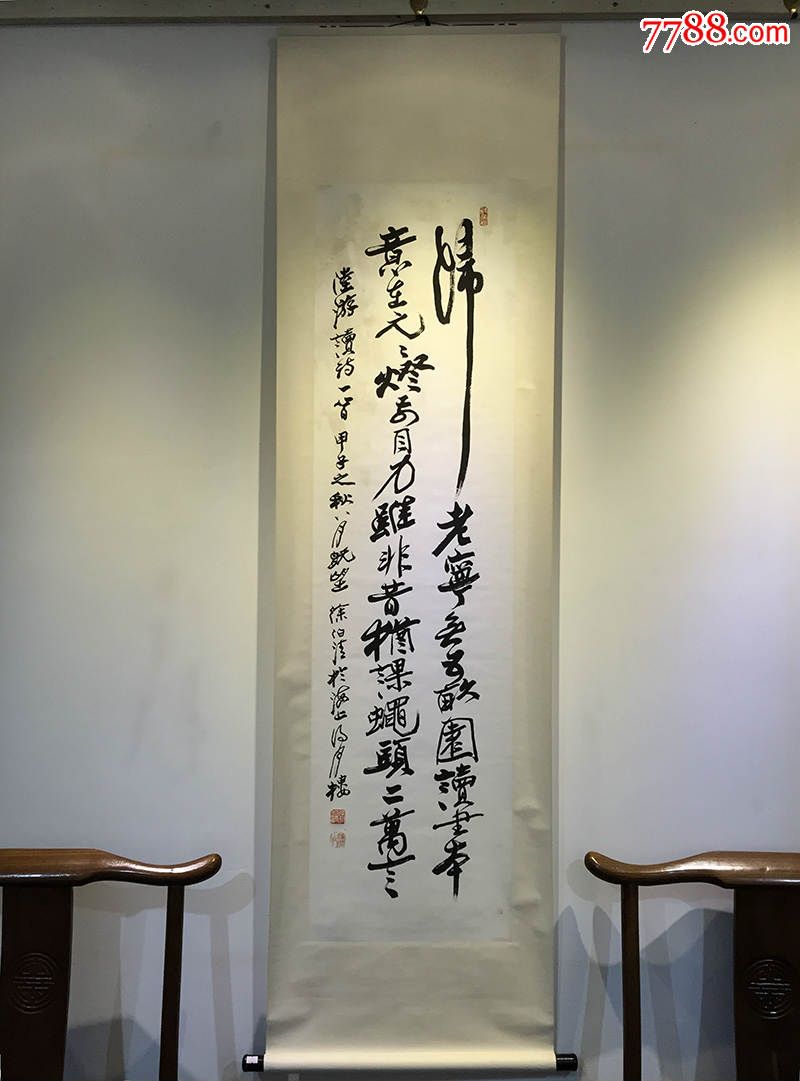 7788.com
歸老寧無五畝園讀書本
意在元〻燈前目力雖非昔猶課蠅頭二萬言
陸游讀詩一首 甲子之秋八月既望 徐伯清於海上得月樓